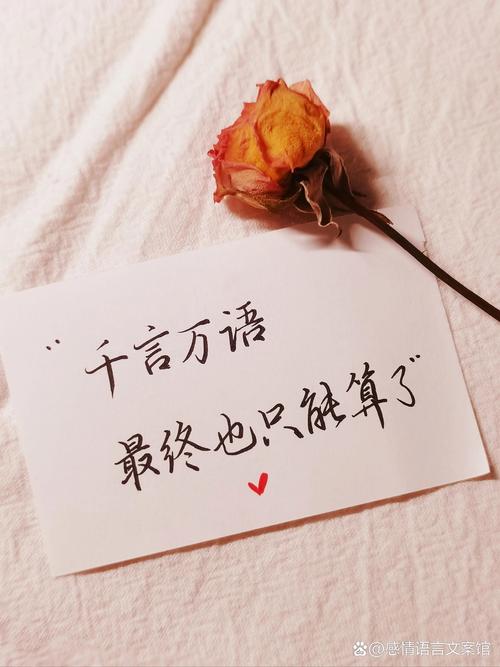 “千言万语
最终也只能算了”
@感情语言文案馆